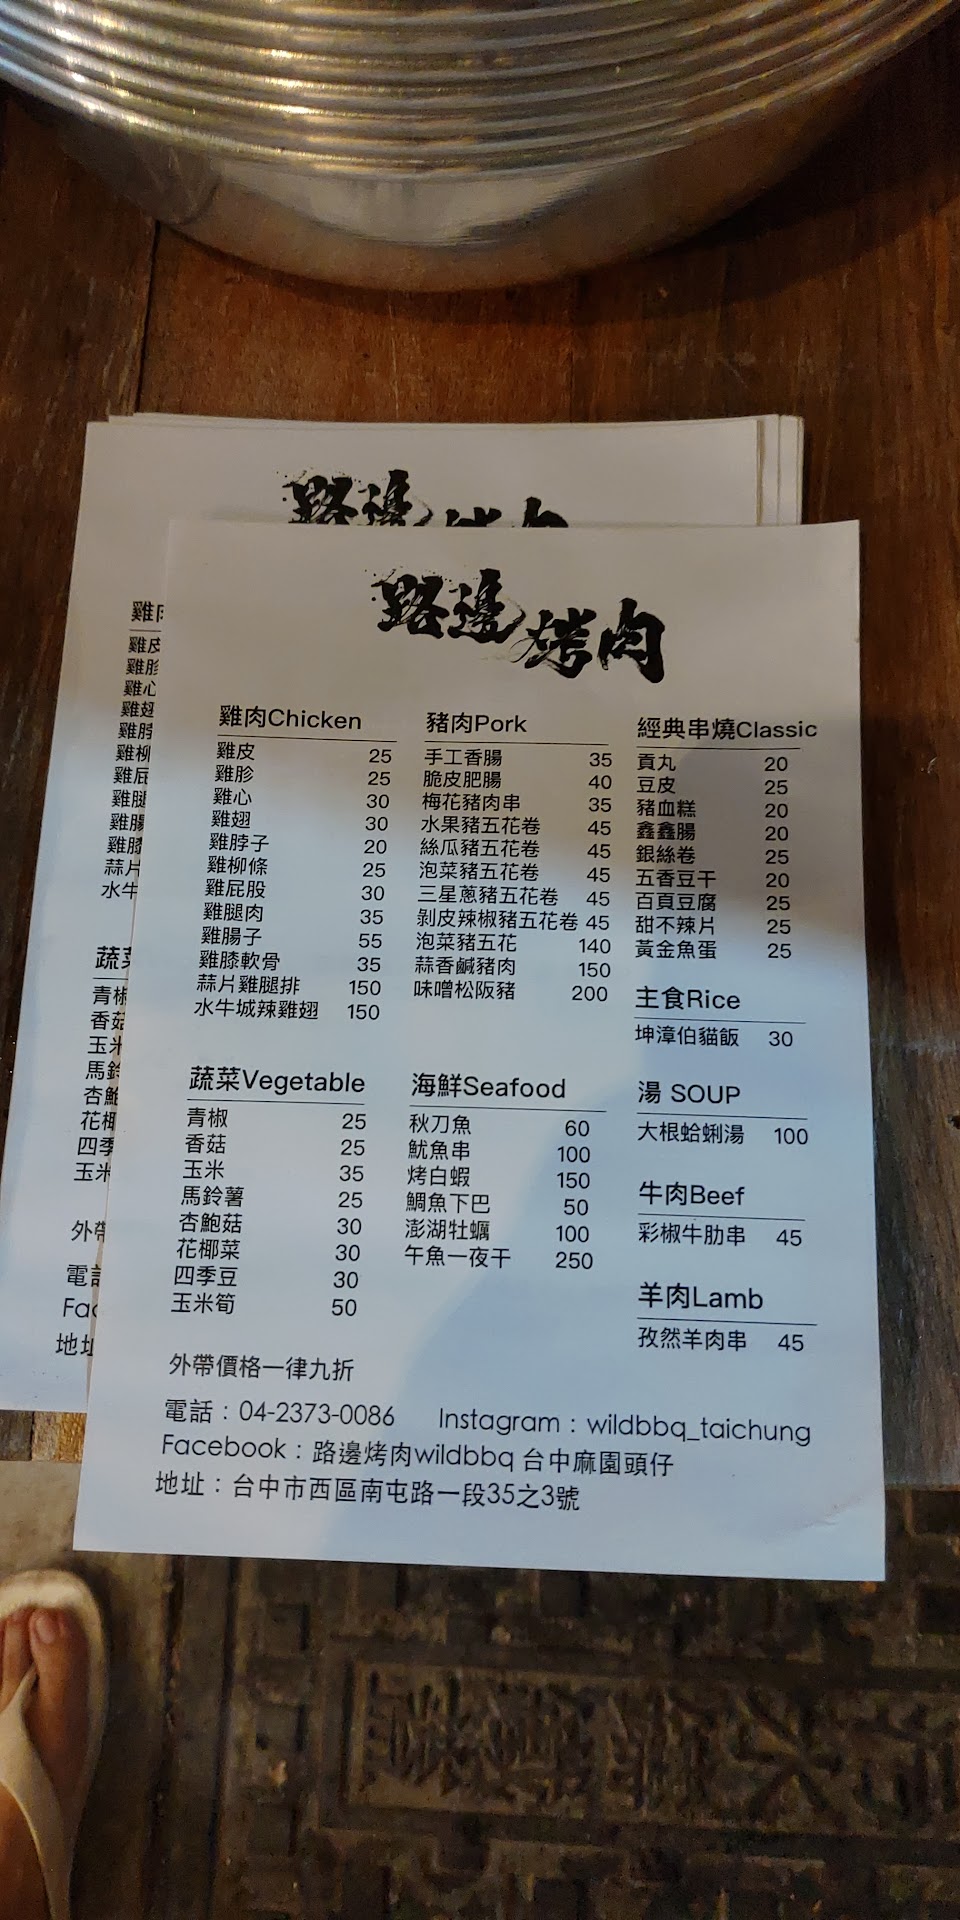 路邊烤肉
雞肉Chicken
雞皮 25
雞胗 25
雞心 30
雞翅 30
雞脖子 20
雞柳條 25
雞屁股 30
雞腿肉 35
雞腸子 55
雞膝軟骨 35
蒜片雞腿排 150
水牛城辣雞翅 150
豬肉Pork
手工香腸 35
脆皮肥腸 40
梅花豬肉串 35
水果豬五花卷 45
絲瓜豬五花卷 45
泡菜豬五花卷 45
三星蔥豬五花卷 45
剝皮辣椒豬五花卷 45
泡菜豬五花 140
蒜香鹹豬肉 150
味噌松阪豬 200
經典串燒Classic
貢丸 20
豆皮 25
豬血糕 20
鑫鑫腸 20
銀絲卷 25
五香豆干 20
百頁豆腐 25
甜不辣片 25
黃金魚蛋 25
主食Rice
坤漳伯貓飯 30
湯 SOUP
大根蛤蜊湯 100
牛肉Beef
彩椒牛肋串 45
羊肉Lamb
孜然羊肉串 45
蔬菜Vegetable
青椒 25
香菇 25
玉米 35
馬鈴薯 25
杏鮑菇 30
花椰菜 30
四季豆 30
玉米筍 50
海鮮Seafood
秋刀魚 60
魷魚串 100
烤白蝦 150
鯛魚下巴 50
澎湖牡蠣 100
午魚一夜干 250
外帶價格一律九折
電話：04-2373-0086 Instagram：wildbbq_taichung
Facebook：路邊烤肉wildbbq 台中麻園頭仔
地址：台中市西區南屯路一段35之3號
路邊烤肉
雞肉
雞皮
雞胗
雞心
雞翅
雞脖
雞柳
雞屁
雞腿
雞腸
雞膝
蒜片
水牛
蔬菜
青椒
香菇
玉米
馬鈴
杏鮑
花椰
四季
玉米
外帶
電話
Fac
地址